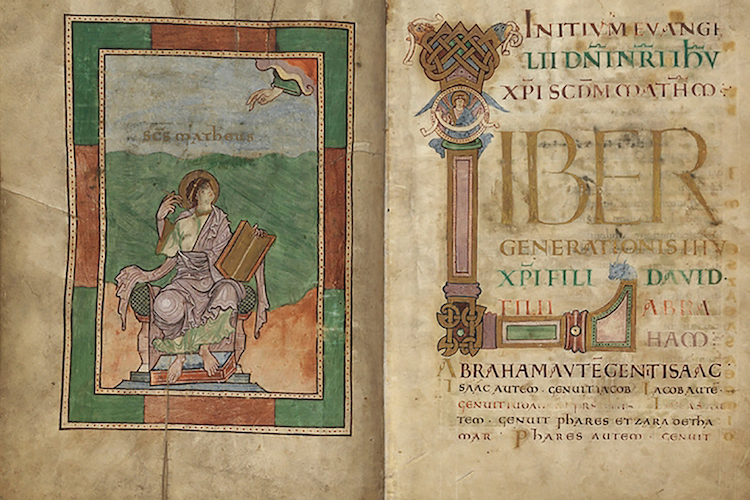 SCS MATHEUS
INITIUM EVANGE
LII DN̅I N̅RI IH̅U
XP̅I SCD̅M MATHM:
LIBER
GENERATIONIS IHV
XP̅I FILI DAVID·
FILII ABRA
HAM
ABRAHAM AVTĒ GENT ISAAC
ISAAC AUTEM · GENUIT IACOB IACOB AUTE·
GENUIT
TEM · GENUIT PHARES ET ZARA DE THA
MAR · PHARES AUTEM · GENUIT